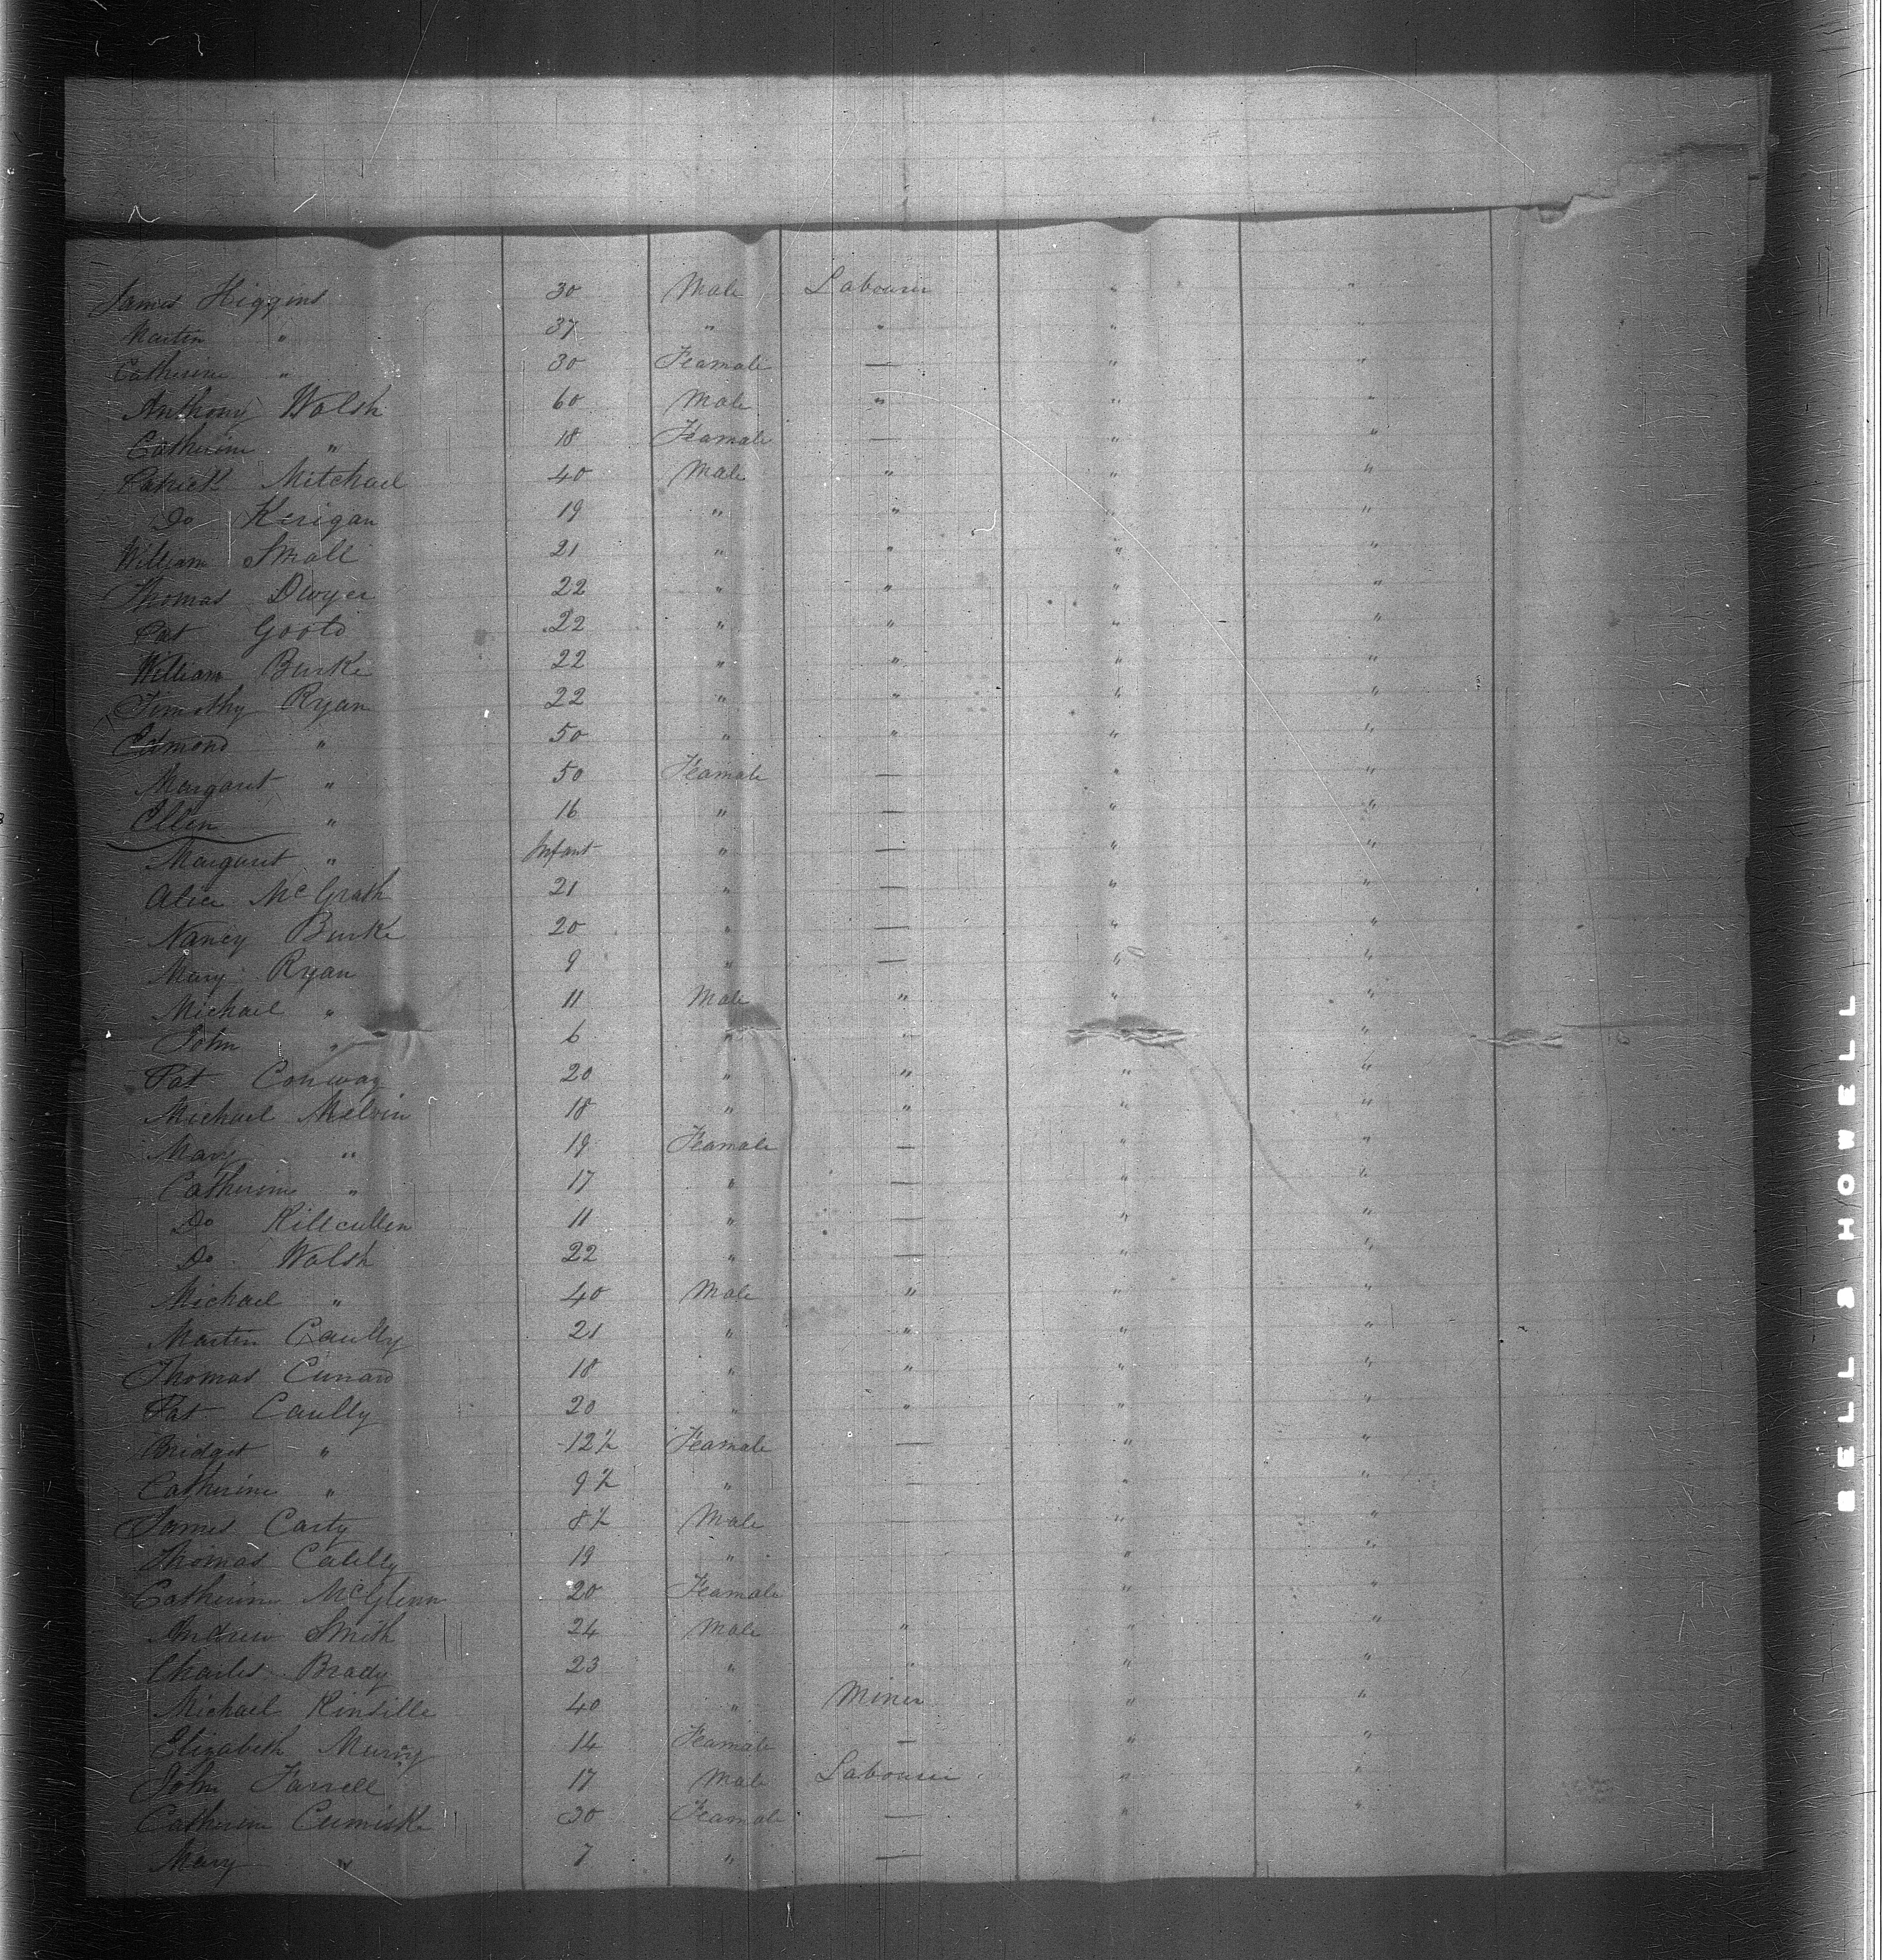 James Higgins 30 Male Labourer " "
Martin " 37 " " " "
Catherine " 30 Feamale — " "
Anthony Walsh 60 Male " " "
Catherine " 18 Feamale — " "
Patrick Mitchael 40 Male " " "
Do Kerigan 19 " " " "
William Small 21 " " " "
Thomas Dwyer 22 " " " "
Pat Goold 22 " " " "
William Burke 22 " " " "
Timothy Ryan 22 " " " "
Edmond " 50 " " " "
Margaret " 50 Feamale — " "
Ellen " 16 " — " "
Margaret " Infant " — " "
Alice McGrath 21 " — " "
Nancy Burke 20 " — " "
Mary Ryan 9 " — " "
Michael " 11 Male " " "
John " 6 " " " "
Pat Conway 20 " " " "
Michael Melvin 18 " " " "
Mary " 19 Feamale — " "
Catherine " 17 " — " "
Do Killcullen 11 " — " "
Do Walsh 22 " — " "
Michael " 40 Male " " "
Martin Caully 21 " " " "
Thomas Cunard 18 " " " "
Pat Caully 20 " " " "
Bridget " 12½ Feamale — " "
Catherine " 9½ " — " "
James Carty 8½ Male — " "
Thomas Caully 19 " " "
Catherine McGlenn 20 Feamale " "
Andrew Smith 24 Male " " "
Charles Brady 23 " " " "
Michael Kinsille 40 " Miner " "
Elizabeth 14 Feamale — " "
John Farrell 17 Male Labourer " "
Catherine Cumiske 30 Feamale — " "
Mary " 7 " —
BELL & HOWELL